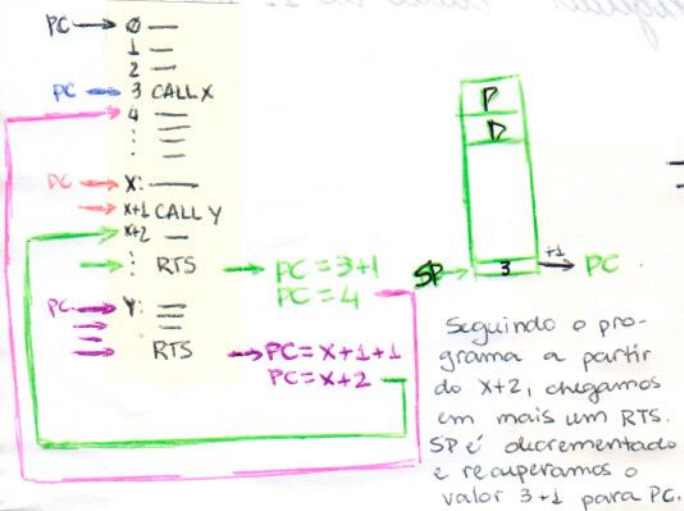 PC → 0 —
1 —
2 —
PC → 3 CALL X
4 —
PC → X: —
→ X+1 CALL Y
X+2 —
→ : RTS → PC = 3+1
PC = 4
PC → Y: —
→ RTS → PC = X+1+1
PC = X+2
P
D
SP → 3 +1 → PC
Seguindo o pro-
grama a partir
do X+2, chegamos
em mais um RTS.
SP é decrementado
e recuperamos o
valor 3+1 para PC.